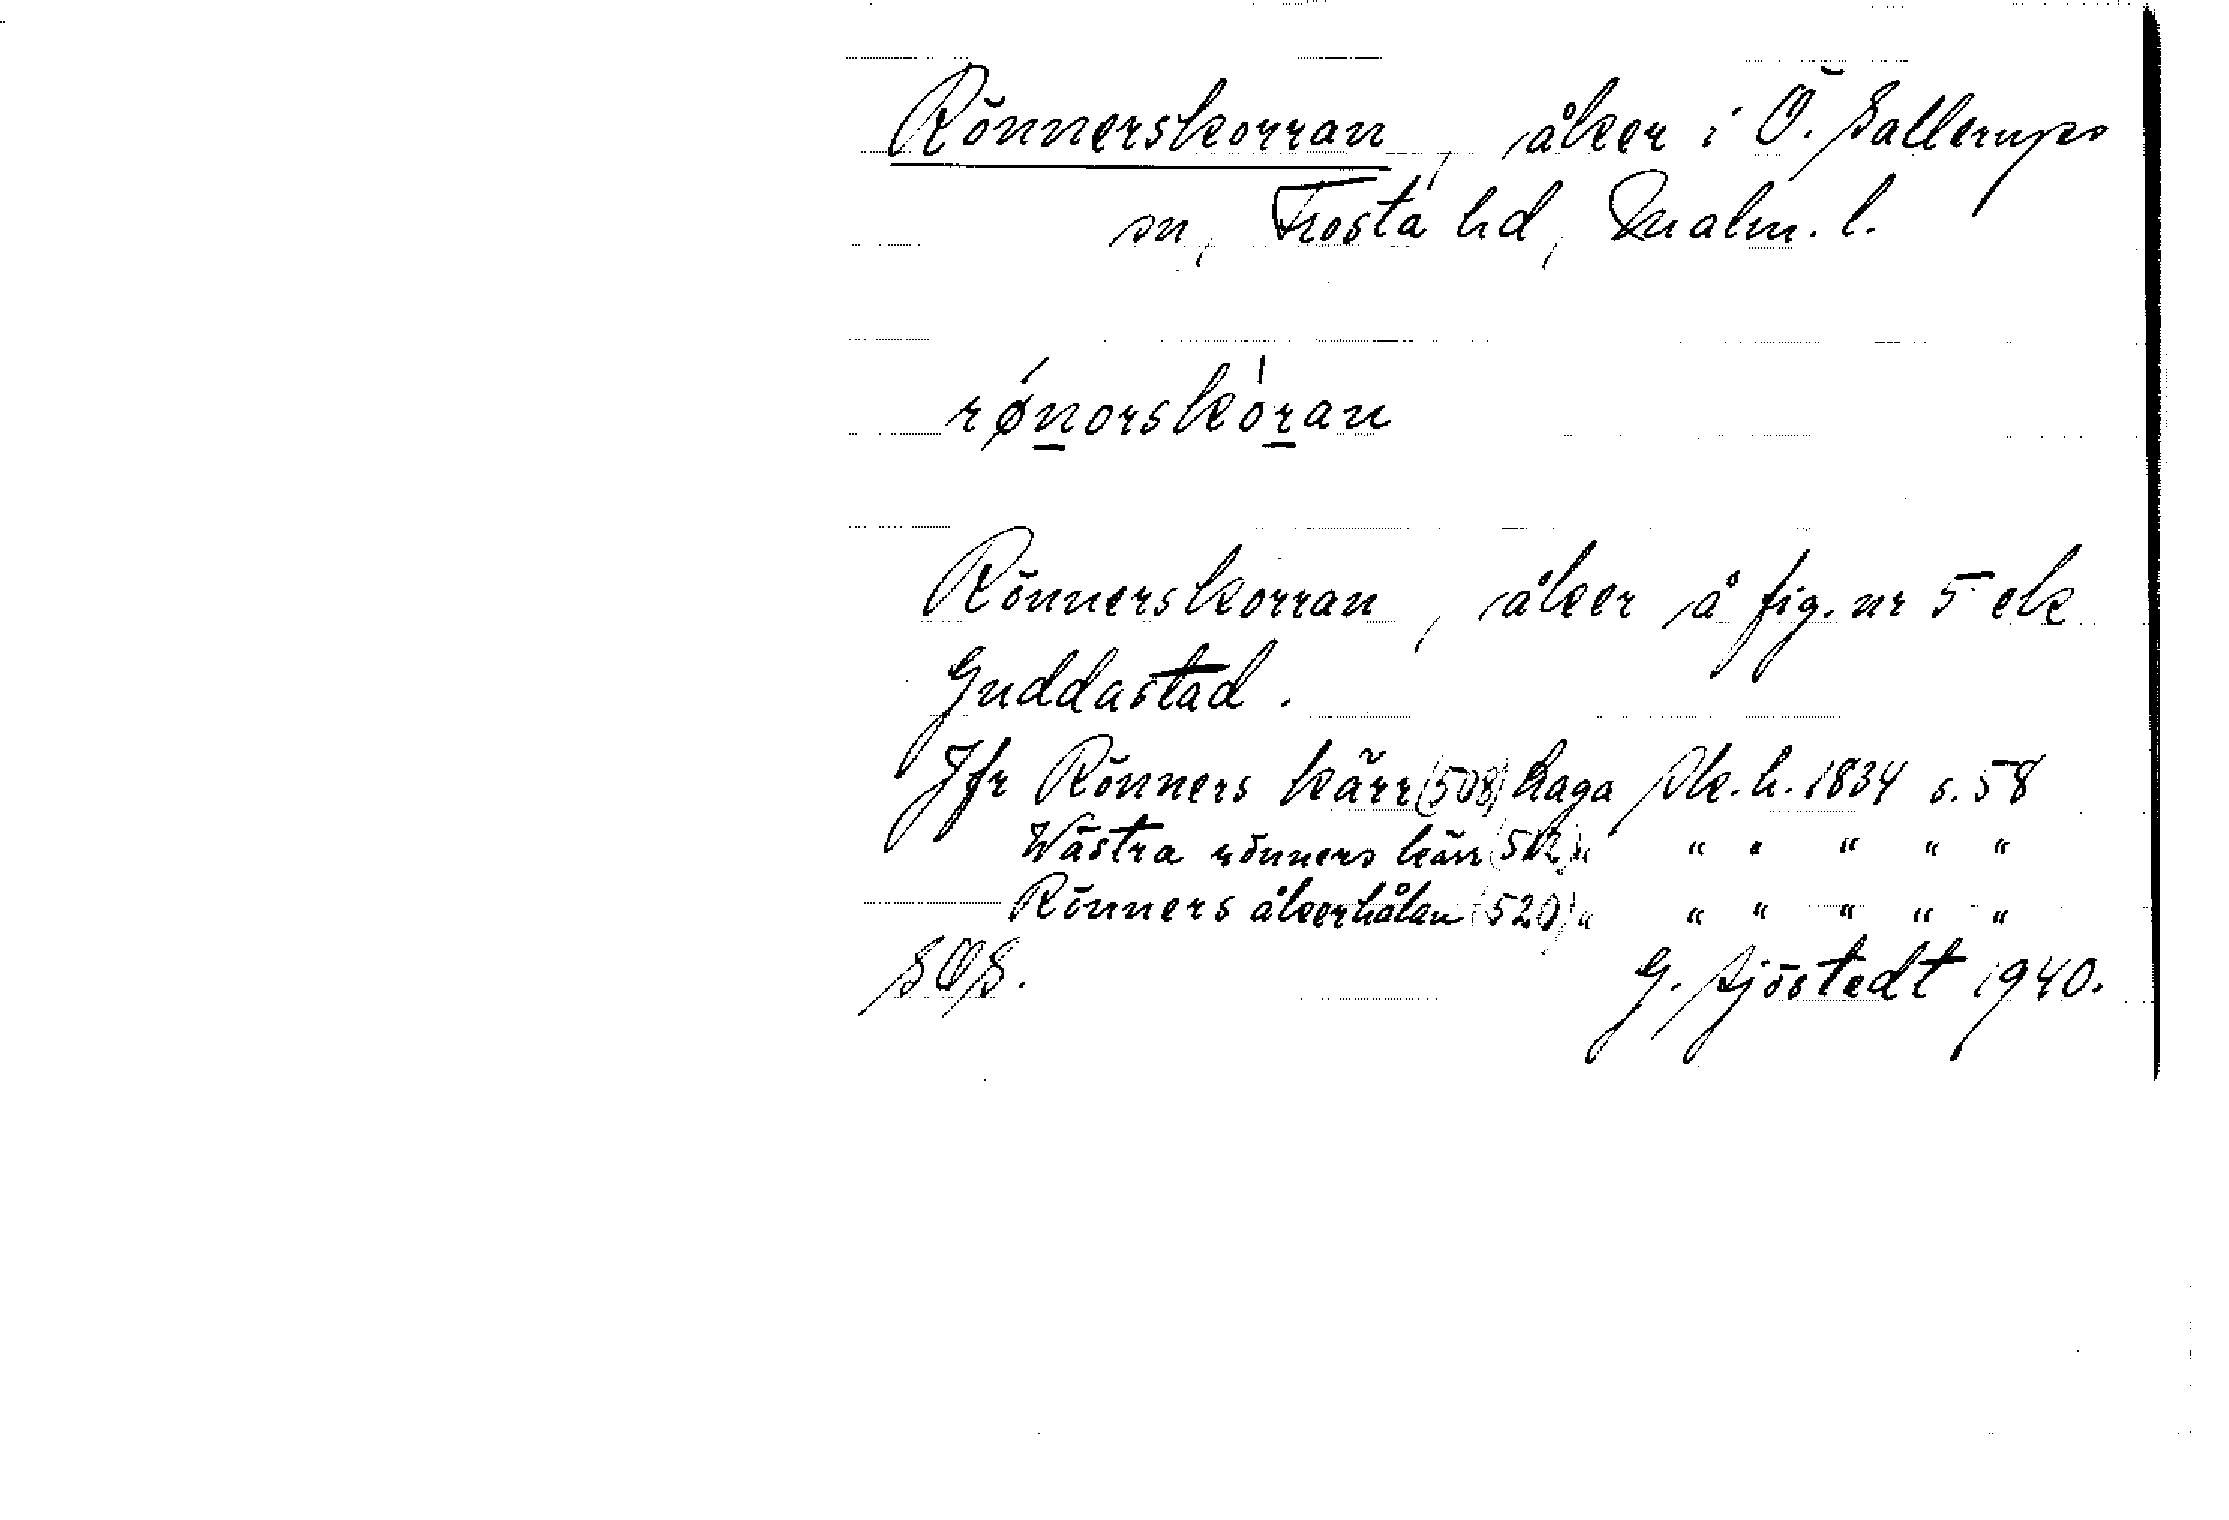 Rönnerskorran, åker i Ö. Sallerups
sn, Frosta hd, Malm. l.
rǿnorskóran
Rönnerskorran, åker å fig. nr 5 ek
Guddastad.
Jfr Rönners kärr (508) haga Sk. h. 1834 s. 58
Wästra rönners kärr (512) " " " " " "
Rönners åkerhålan (520) " " " " " "
SOS. G. Sjöstedt 1940.